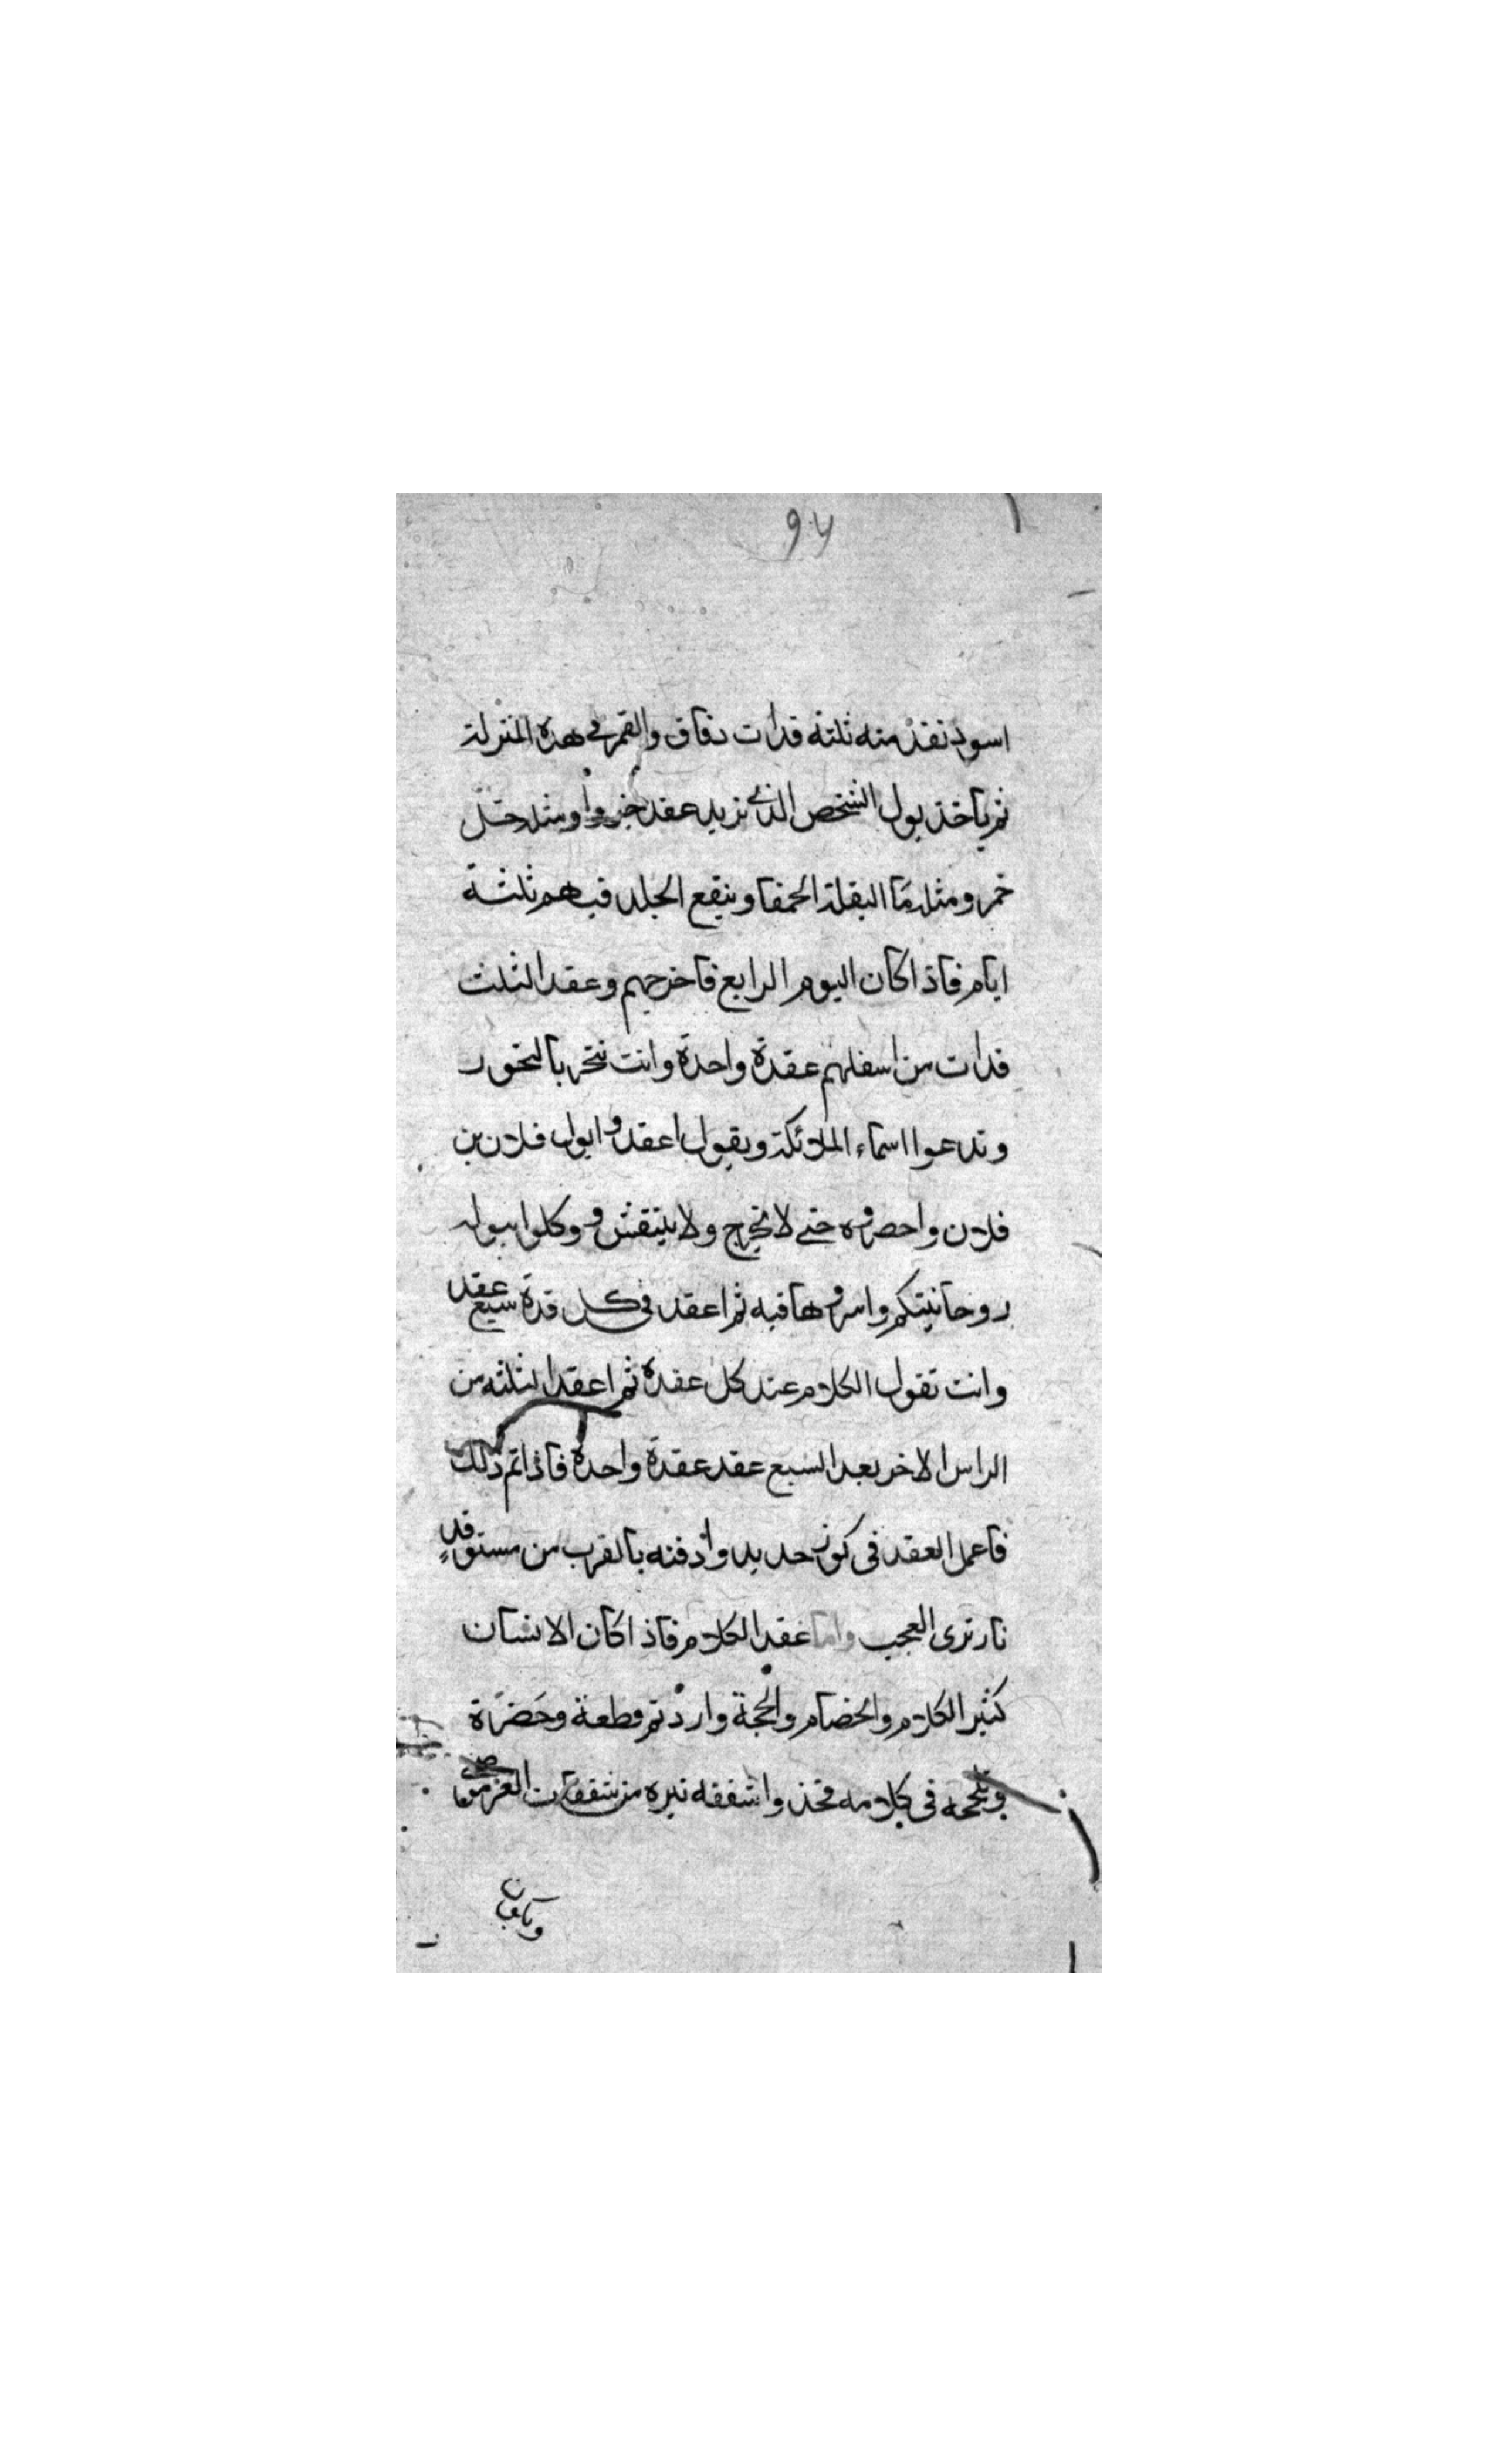 ٩٤
اسود نقد منه ثلثة قدات دقاق والقمر في هذه المنزلة
ثم ياخذ بول الشخص الذي تريد عقد ومثله خل
خمر ومثله ما البقلة الحمقا وينقع الجلد فيهم ثلثة
ايام فاذا كان اليوم الرابع فاخرجهم وعقد الثلث
قدات من اسفلهم عقدة واحدة وانت تبخر بالبخور
وتدعوا اسماء الملائكة ويقول اعقدوا بول فلان بن
فلان واحصروه حتى لا يخرج ولا ينتقش ووكلوا ببوله
روحانيتكم واسروها فيه ثم اعقد في كل قدة سبع عقد
وانت تقول الكلام عند كل عقدة ثم اعقد الثلثه من
الراس الاخر بعد السبع عقد عقدة واحدة فاذا تم ذلك
فاعمل العقد في كوز حديد وادفنه بالقرب من مستوقد
نار ترى العجب واما عقد الكلام فاذا كان الانسان
كثير الكلام والخصام والحجة واردتم قطعة وحضرة
وتلجمه في كلامه فخذ شقفه نيره من شقفات